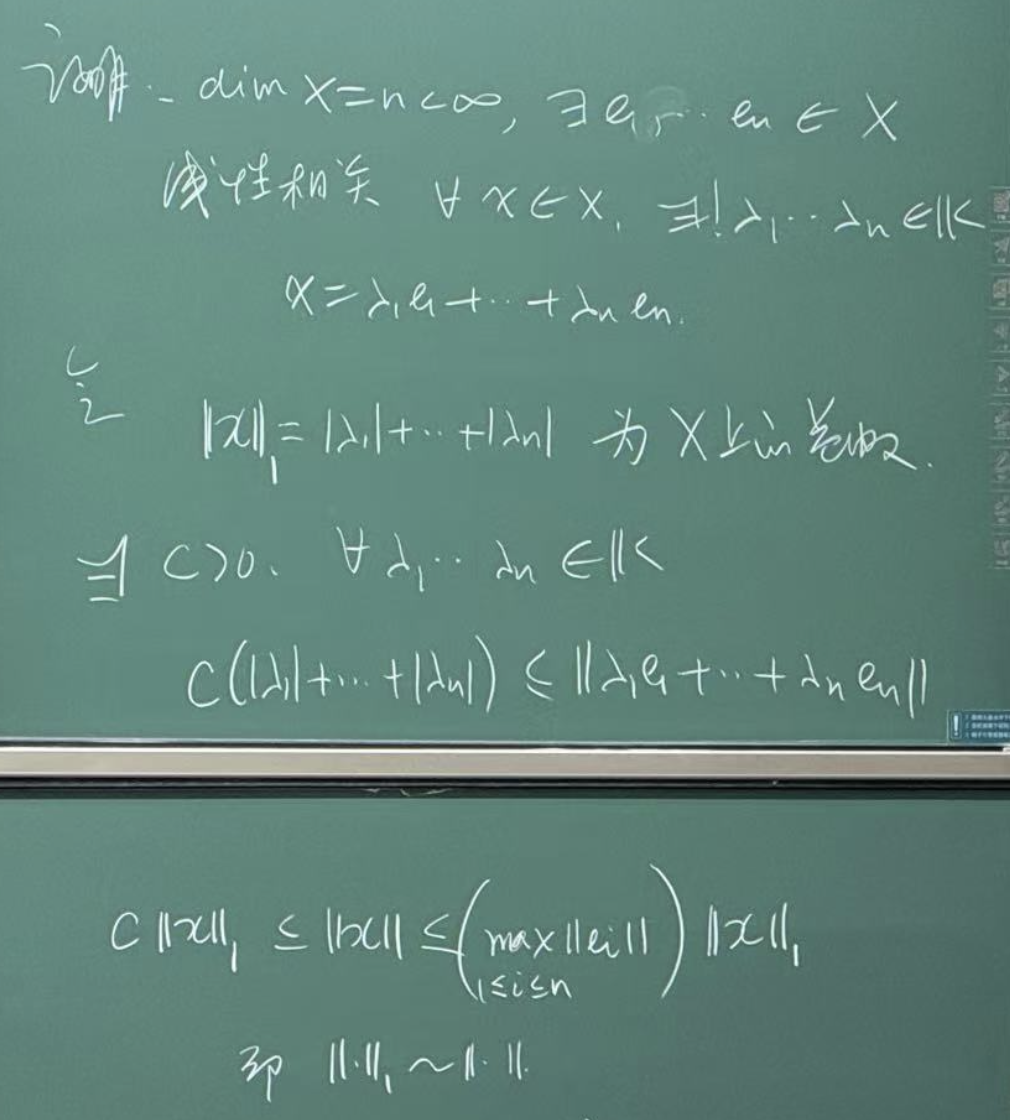 证明. dim X=n<∞, ∃ e₁, … en ∈ X
线性相关 ∀ x∈X, ∃! λ₁ … λn ∈ 𝕂
x=λ₁e₁+…+λn en.
记
‖x‖₁=|λ₁|+…+|λn| 为 X 上的范数.
∃ C>0. ∀ λ₁ … λn ∈ 𝕂
C(|λ₁|+…+|λn|) ≤ ‖λ₁e₁+…+λn en‖
C‖x‖₁ ≤ ‖x‖ ≤ (max‖ei‖) ‖x‖₁
1≤i≤n
即 ‖·‖₁ ~ ‖·‖.